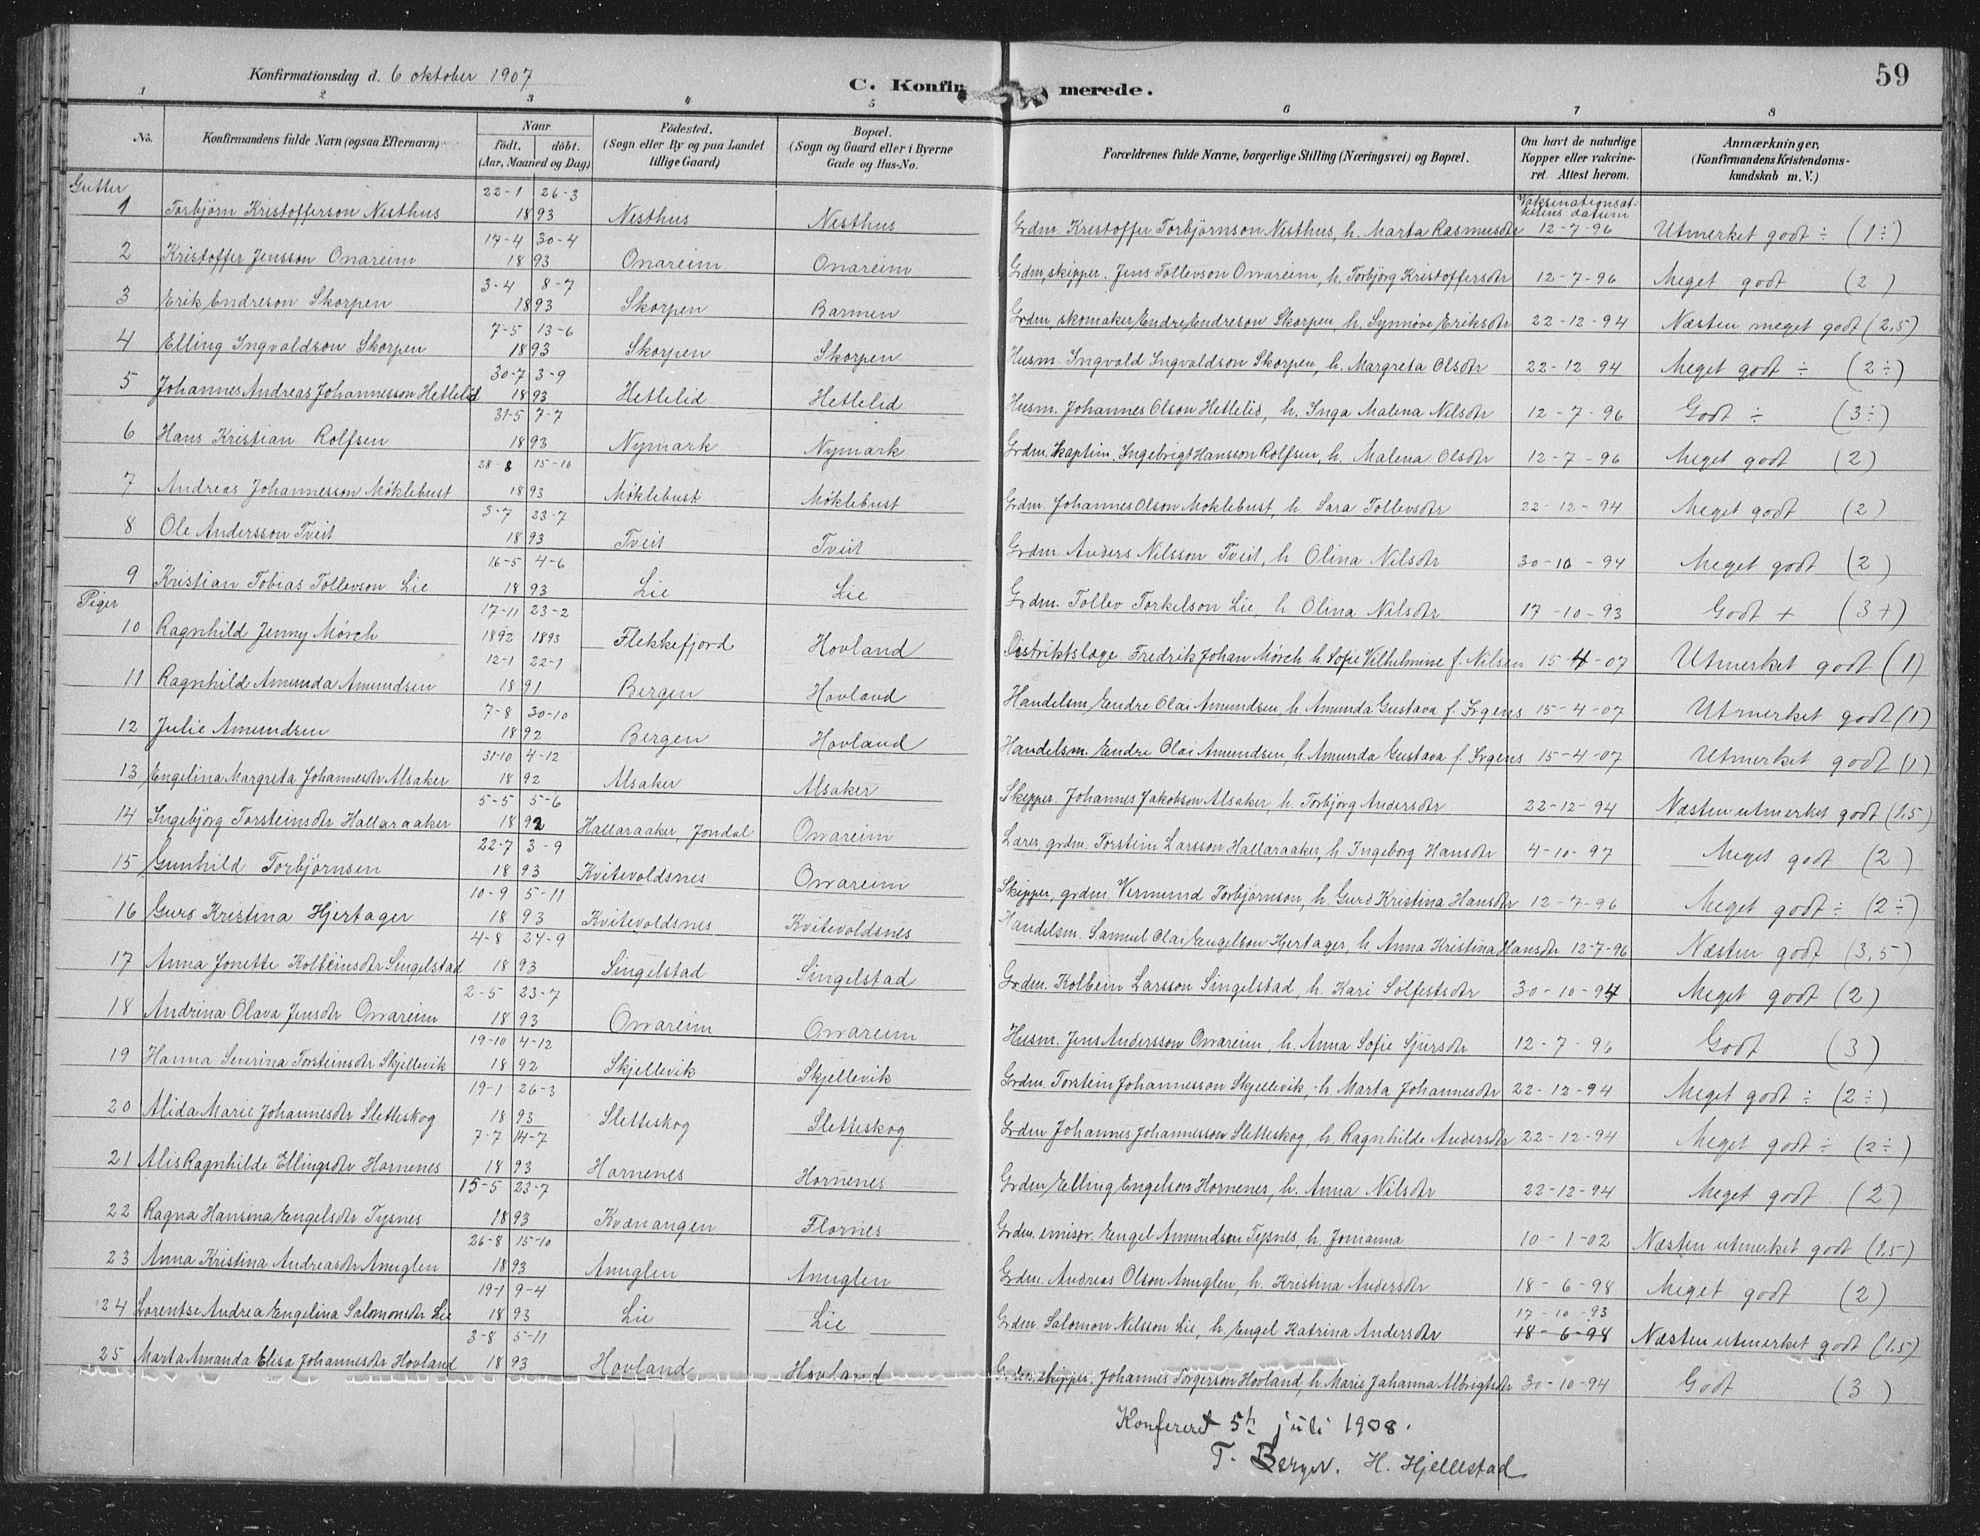 Konfirmationsdag d. 6 oktober 1907
C. Konfirmerede.
59
1 2 3 4 5 6 7 8
No.
Konfirmandens fulde Navn (ogsaa Efternavn)
Naar
født. døbt.
(Aar, Maaned og Dag)
Fødested.
(Sogn eller By og paa Landet
tillige Gaard)
Bopæl.
(Sogn og Gaard eller i Byerne
Gade og Hus-No.
Forældrenes fulde Navne, borgerlige Stilling (Næringsvei) og Bopæl.
Om havt de naturlige
Kopper eller vakcine-
ret. Attest herom.
Anmærkninger,
(Konfirmandens Kristendoms-
kundskab m. V.)
Gutter
Vaksinationsat-
testens datum
1 Torbjørn Kristofferson Nesthus 22-1 26-3 1893 Nesthus Nesthus Grdm. Kristoffer Torbjørnson Nesthus, h. Marta Rasmusdtr 12-7-96 Utmerket godt ÷ (1÷)
2 Kristoffer Jensson Onareim 17-4 30-4 1893 Onareim Onareim Grdm, skipper. Jens Tollevson Onareim, h. Torbjørg Kristoffersdtr 12-7-96 Meget godt (2)
3 Erik Endreson Skorpen 3-4 8-7 1893 Skorpen Barmen Grdm skomaker Endre Endreson Skorpen, h. Synnøve Eriksdtr 22-12-94 Næsten meget godt (2,5)
4 Elling Ingvaldson Skorpen 7-5 13-6 1893 Skorpen Skorpen Husm. Ingvald Ingvaldson Skorpen, h. Margreta Olsdtr 22-12 94 Meget godt ÷ (2÷)
5 Johannes Andreas Johannesson Hetlelid 30-7 3-9 1893 Hetlelid Hetlelid Husm. Johannes Olson Hetlelid, h. Inga Malena Nilsdtr 12-7-96 Godt ÷ (3÷)
6 Hans Kristian Rolfsen 31-5 7-7 1893 Nymark Nymark Grdm. kaptein. Ingebrigt Hansson Rolfsen, h. Malena Olsdtr 12-7-96 Meget godt (2)
7 Andreas Johannesson Møklebust 28-8 15-10 1893 Møklebust Møklebust Grdm. Johannes Olson Møklebust, h. Sara Tollevsdtr 22-12-94 Meget godt (2)
8 Ole Andersson Tveit 3-7 23-7 1893 Tveit Tveit Grdm. Anders Nilsson Tveit, h Olina Nilsdtr 30-10-94 Meget godt (2)
9 Kristian Tobias Tollevson Lie 16-5 4-6 1893 Lie Lie Grdm. Tollev Torkelson Lie, h Olina Nilsdtr 17-10-93 Godt + (3+)
Piger
10 Ragnhild Jenny Mørch 17-11 23-2 1892 1893 Flekkefjord Hovland Distriktslæge. Fredrik Johan Mørch h Sofie Vilhelmine f. Nilsen 15-4-07 Utmerket godt (1)
11 Ragnhild Amunda Amundsen 12-1 22-1 1891 Bergen Hovland Handelsm, Endre Olai Amundsen, h. Amunda Gustava f. Irgens 15-4-07 Utmerket godt (1)
12 Julie Amundsen 7-8 30-10 1892 Bergen Hovland Handelsm. Endre Olai Amundsen, h. Amunda Gustava f. Irgens 15-4-07 Utmerket godt (1)
13 Engelina Margreta Johannesdtr Alsaker 31-10 4-12 1892 Alsaker Alsaker Skipper Johannes Jakobson Alsaker, h. Torbjørg Andersdtr 22-12-94 Næsten utmerket godt (1,5)
14 Ingebjørg Torsteinsdtr Hallaraaker 5-5 5-6 1892 Hallaraaker, Jondal Onareim Lærer, grdm. Torstein Larsson Hallaraaker, h Ingeborg Hansdtr 4-10-97 Meget godt (2)
15 Gunhild Torbjørnsen 22-7 3-9 1893 Kvitevoldsnes Onareim Skipper, grdm. Vermund Torbjørnson, h. Guro Kristina Hansdtr 12-7-96 Meget godt ÷ (2÷)
16 Guro Kristina Hjertager 10-9 5-11 1893 Kvitevoldsnes Kvitevoldsnes Handelsm. Samuel Olai Engelson Hjertager, h. Anna Kristina Hansdtr 12-7-96 Næsten godt (3,5)
17 Anna Jonette Kolbeinsdtr Singelstad 4-8 24-9 1893 Singelstad Singelstad Grdm. Kolbein Larsson Singelstad, h. Kari Solfestsdtr 30-10-94 Meget godt (2)
18 Andrina Olava Jensdtr Onareim 2-5 23-7 1893 Onareim Onareim Husm. Jens Andersson Onareim, h. Anna Sofie Sjursdtr 12-7-96 Godt (3)
19 Hanna Severina Torsteinsdtr Skjellevik 19-10 4-12 1892 Skjellevik Skjellevik Grdm. Torstein Johannesson Skjellevik, h Marta Johannesdtr 22-12-94 Meget godt ÷ (2÷)
20 Alida Marie Johannesdtr Sletteskog 19-1 26-3 1893 Sletteskog Sletteskog Grdm Johannes Johannesson Sletteskog, h. Ragnhilde Andersdtr 22-12-94 Meget godt ÷ (2÷)
21 Alis Ragnhilde Ellingsdtr Hornenes 7-7 14-7 1893 Hornenes Hornenes Grdm Elling Engelson Hornenes, h. Anna Nilsdtr 22-12-94 Meget godt (2)
22 Ragna Hansina Engelsdtr Tysnes 15-5 23-7 1893 Kvænangen Flornes Grdm. emisør. Engel Amundson Tysnes, h. Jonianna 10-1-02 Næsten utmerket godt (1,5)
23 Anna Kristina Andreasdtr Anuglen 26-8 15-10 1893 Anuglen Anuglen Grdm. Andreas Olson Anuglen, h. Kristina Andersdtr 18-6-98 Meget godt (2)
24 Lorentse Andrea Engelina Salomonsdtr Lie 19-1 9-4 1893 Lie Lie Grdm. Salomon Nilsson Lie, h Engel Katrina Andersdtr 17-10-93 18-6-98 Næsten utmerket godt (1,5)
25 Marta Amanda Elisa Johannesdtr Hovland 3-8 5-11 1893 Hovland Hovland skipper. Johannes Torgerson Hovland, h. Marie Johanna Albrigtsdtr 30-10-94 Godt (3)
Konfereret 5te juli 1908.
T. Berge. H. Hjellestad